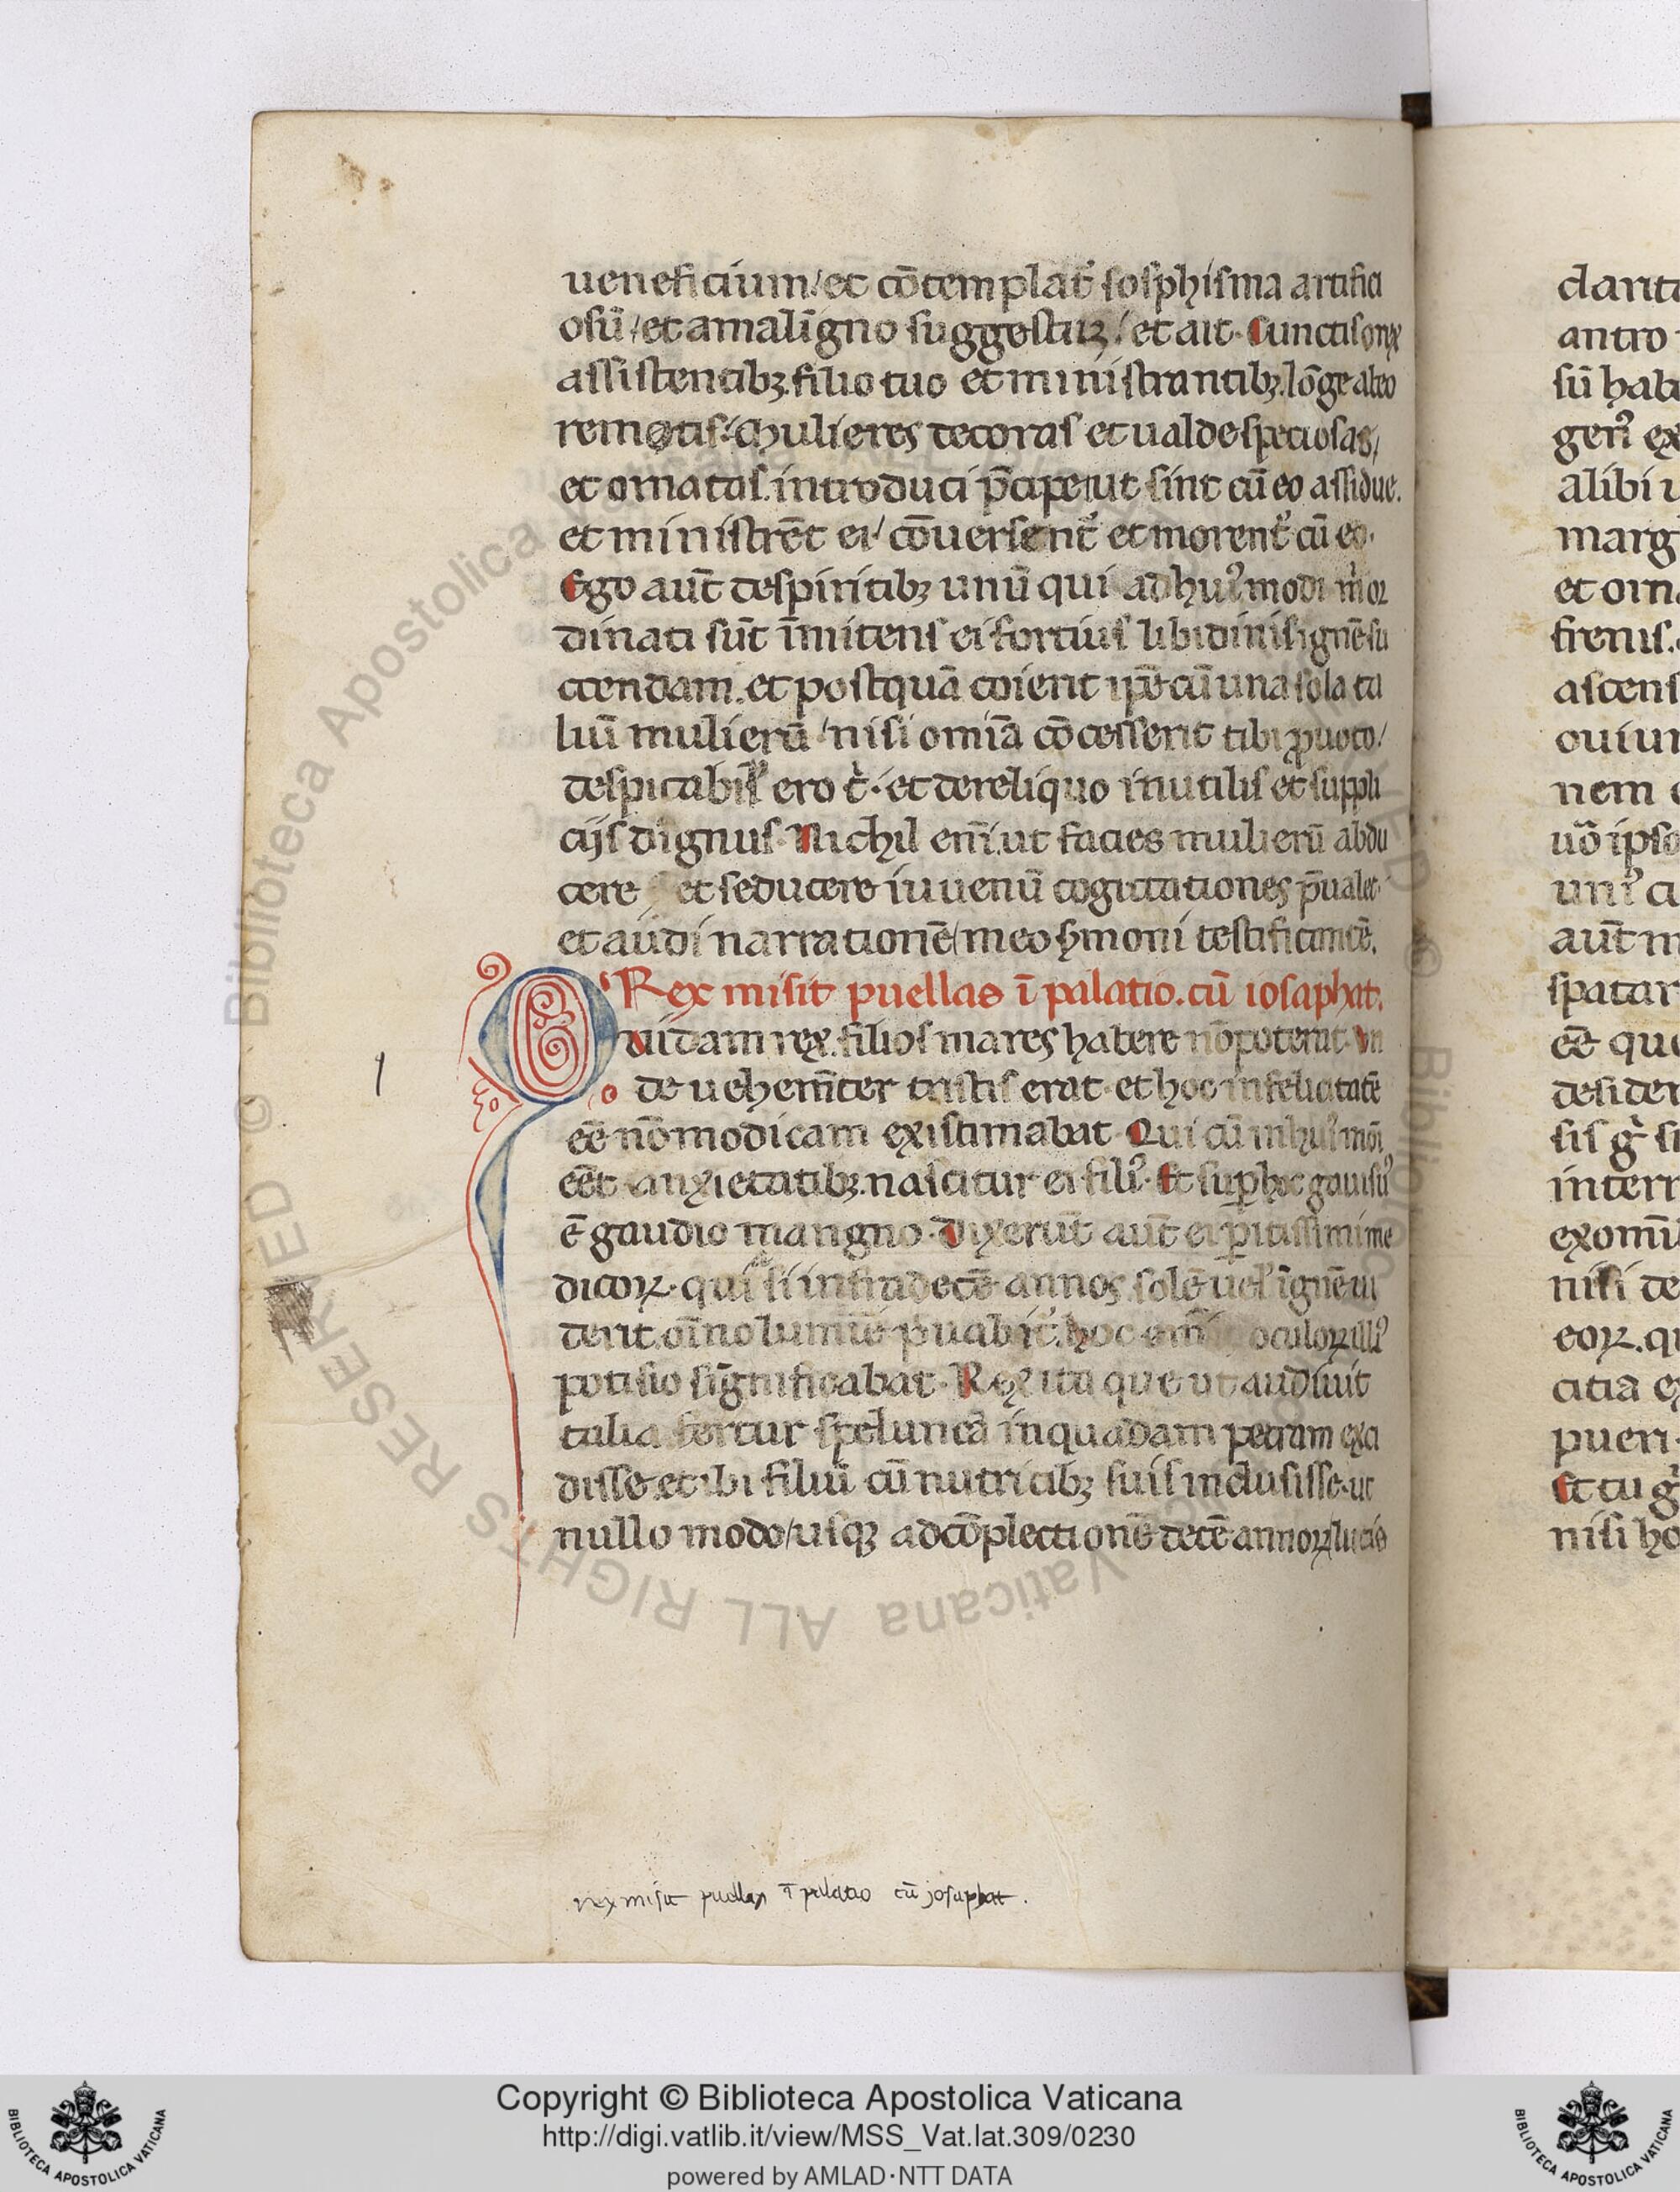 ueneficium / et cōtemplat᷑ sosphisma artifici
osū / et a malīgno suggestuȝ / et ait · Cunctis
assistentibȝ filio tuo et ministrantibȝ lōge ab eo
remotis · Mulieres decoras et ualde speciosas /
et ornatas introduci p̄cipe ut sint cū eo assidue.
et ministrēt ei / cōuersent᷑ et morent᷑ cū eo ·
Ego aut̄ de spiritibȝ unū qui ad huiꝰmodi
dinati sūt īmitens ei fortius libidinis ignē su
ccendam. et postquā coierit ip̄e cū una sola ta
liū mulierū / nisi omīa cōcesserit tibi ꝓ uoto /
despicabil ero t᷑ · et dereliquo inutilis et suppli
cijs dignus · Nichil enī ut facies mulierū abdu
cere et seducere iuuenū cogitationes p̄ualet
et audi narrationē meo s̄moni testificantē.
Rex misit puellas ī palatio. cū iosaphat.
Quidam rex filios mares habere nō poterat · Vn
de uehem̄ter tristis erat · et hoc infelicitatē
eē nō modicam existimabat · Qui cū in huiꝰmōi
eēt anxietatibȝ nascitur ei filiꝰ · Et suꝑ hoc gauisꝰ
ē gaudio mangno · Dixerūt aut̄ ei ꝑitissimi me
dicoꝝ · qui si infra decē annos solē uel īgnē ui
derit. oīno lumīe p̄uabit᷑. hoc enī oculoꝝ illiꝰ
potisio sīgnificabat · Rex itaque ut audiuit
talia fertur speluncā in quadam petram exci
disse et ibi filiū cū nutricibȝ suis inclusisse · ut
nullo modo / usqȝ ad cōplectionē decē annoꝝ lucis
rex misit puellas ī palatio cū josaphat .
darit
antro
sū hab
gerꝰ ex
alibi
marg
et orn
frenis.
ascens
ouiu
nem
uō ipso
aut̄ m
spatar
eē qu
desider
sis g̊ si
interr
exomī
nisi de
eoꝝ. q
citia e
pueri
Et tu g
nisi ho
© Biblioteca Apostolica Vaticana ALL RIGHTS RESERVED
BIBLIOTECA APOSTOLICA VATICANA
Copyright © Biblioteca Apostolica Vaticana
http://digi.vatlib.it/view/MSS_Vat.lat.309/0230
powered by AMLAD·NTT DATA
BIBLIOTECA APOSTOLICA VATICANA